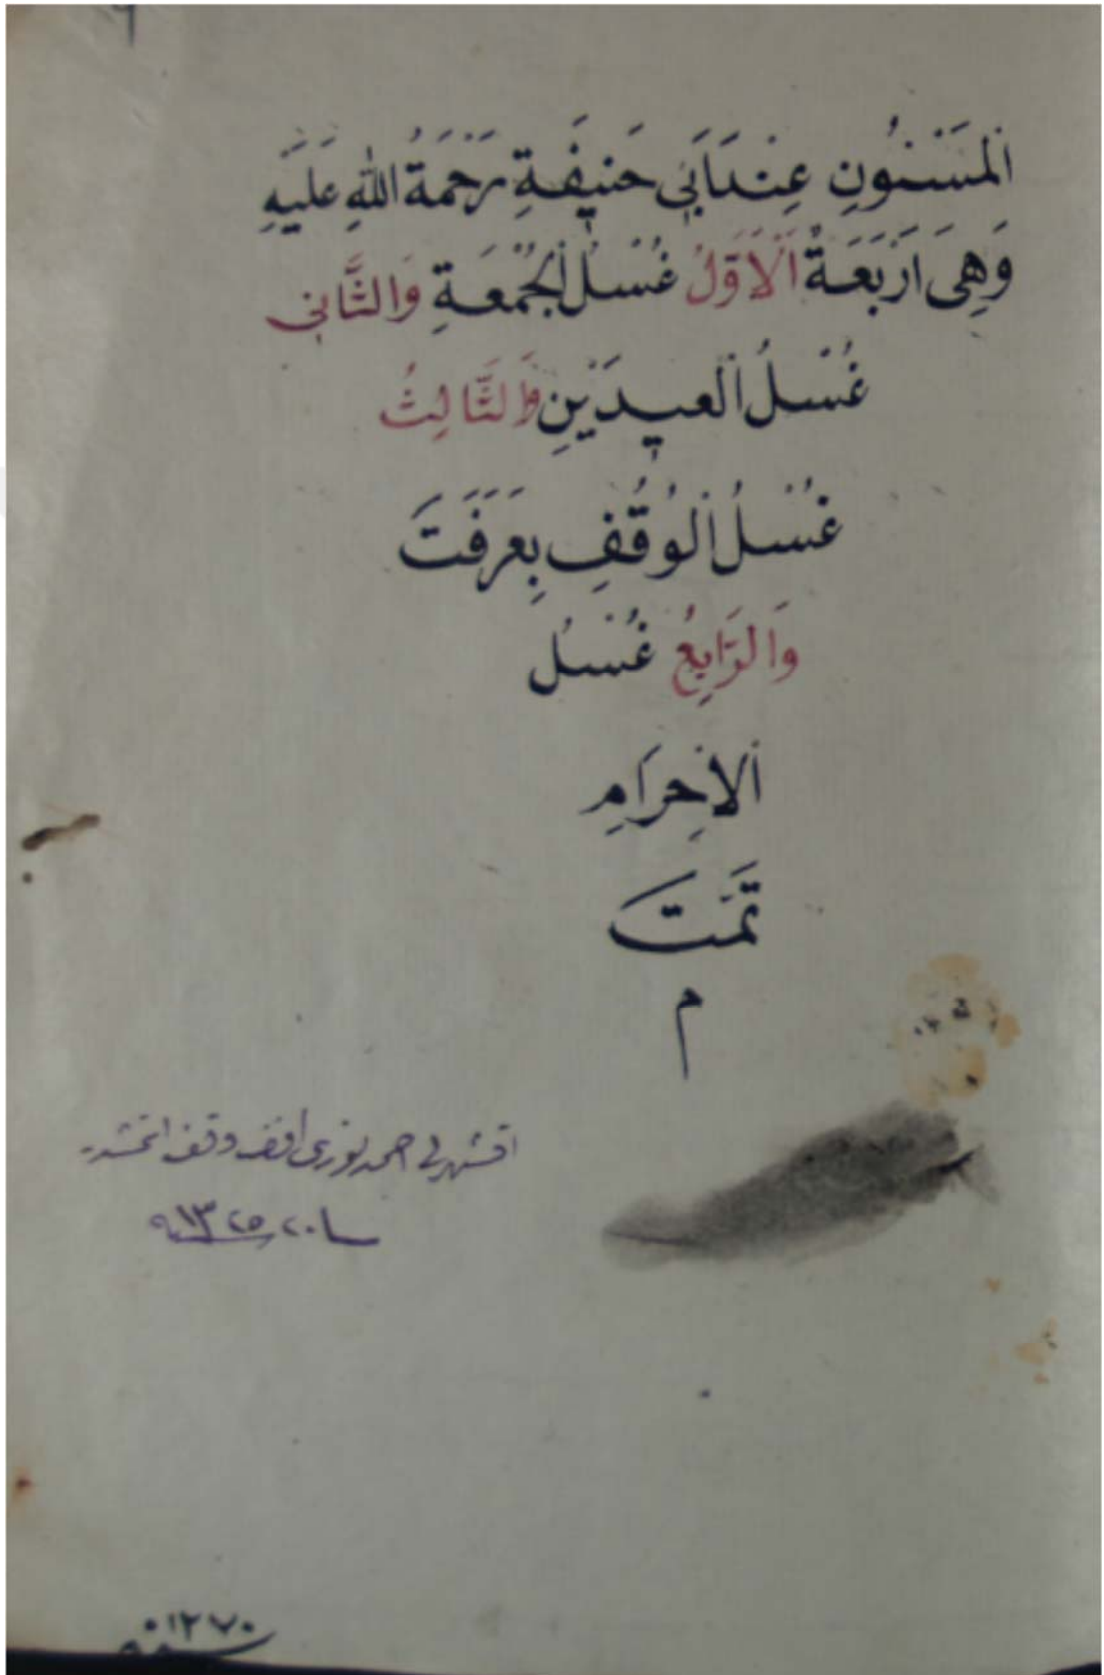 اَلْمَسْنُونِ عِنْدَ اَبِي حَنِيفَةِ رَحْمَةُ اللهِ عَلَيْهِ
وَهِيَ اَرْبَعَةٌ اَلْاَوَّلُ غُسْلُ الْجُمْعَةِ وَالثَّانِي
غُسْلُ الْعِيدَيْنِ وَالثَّالِثُ
غُسْلُ الْوُقُفِ بِعَرَفَتَ
وَالرَّابِعُ غُسْلُ
الْاِحْرَامِ
تَمَّتْ
م
اقشهرلی احمد نوری وقف
١٣٢٥
سنه ١٢٧٠